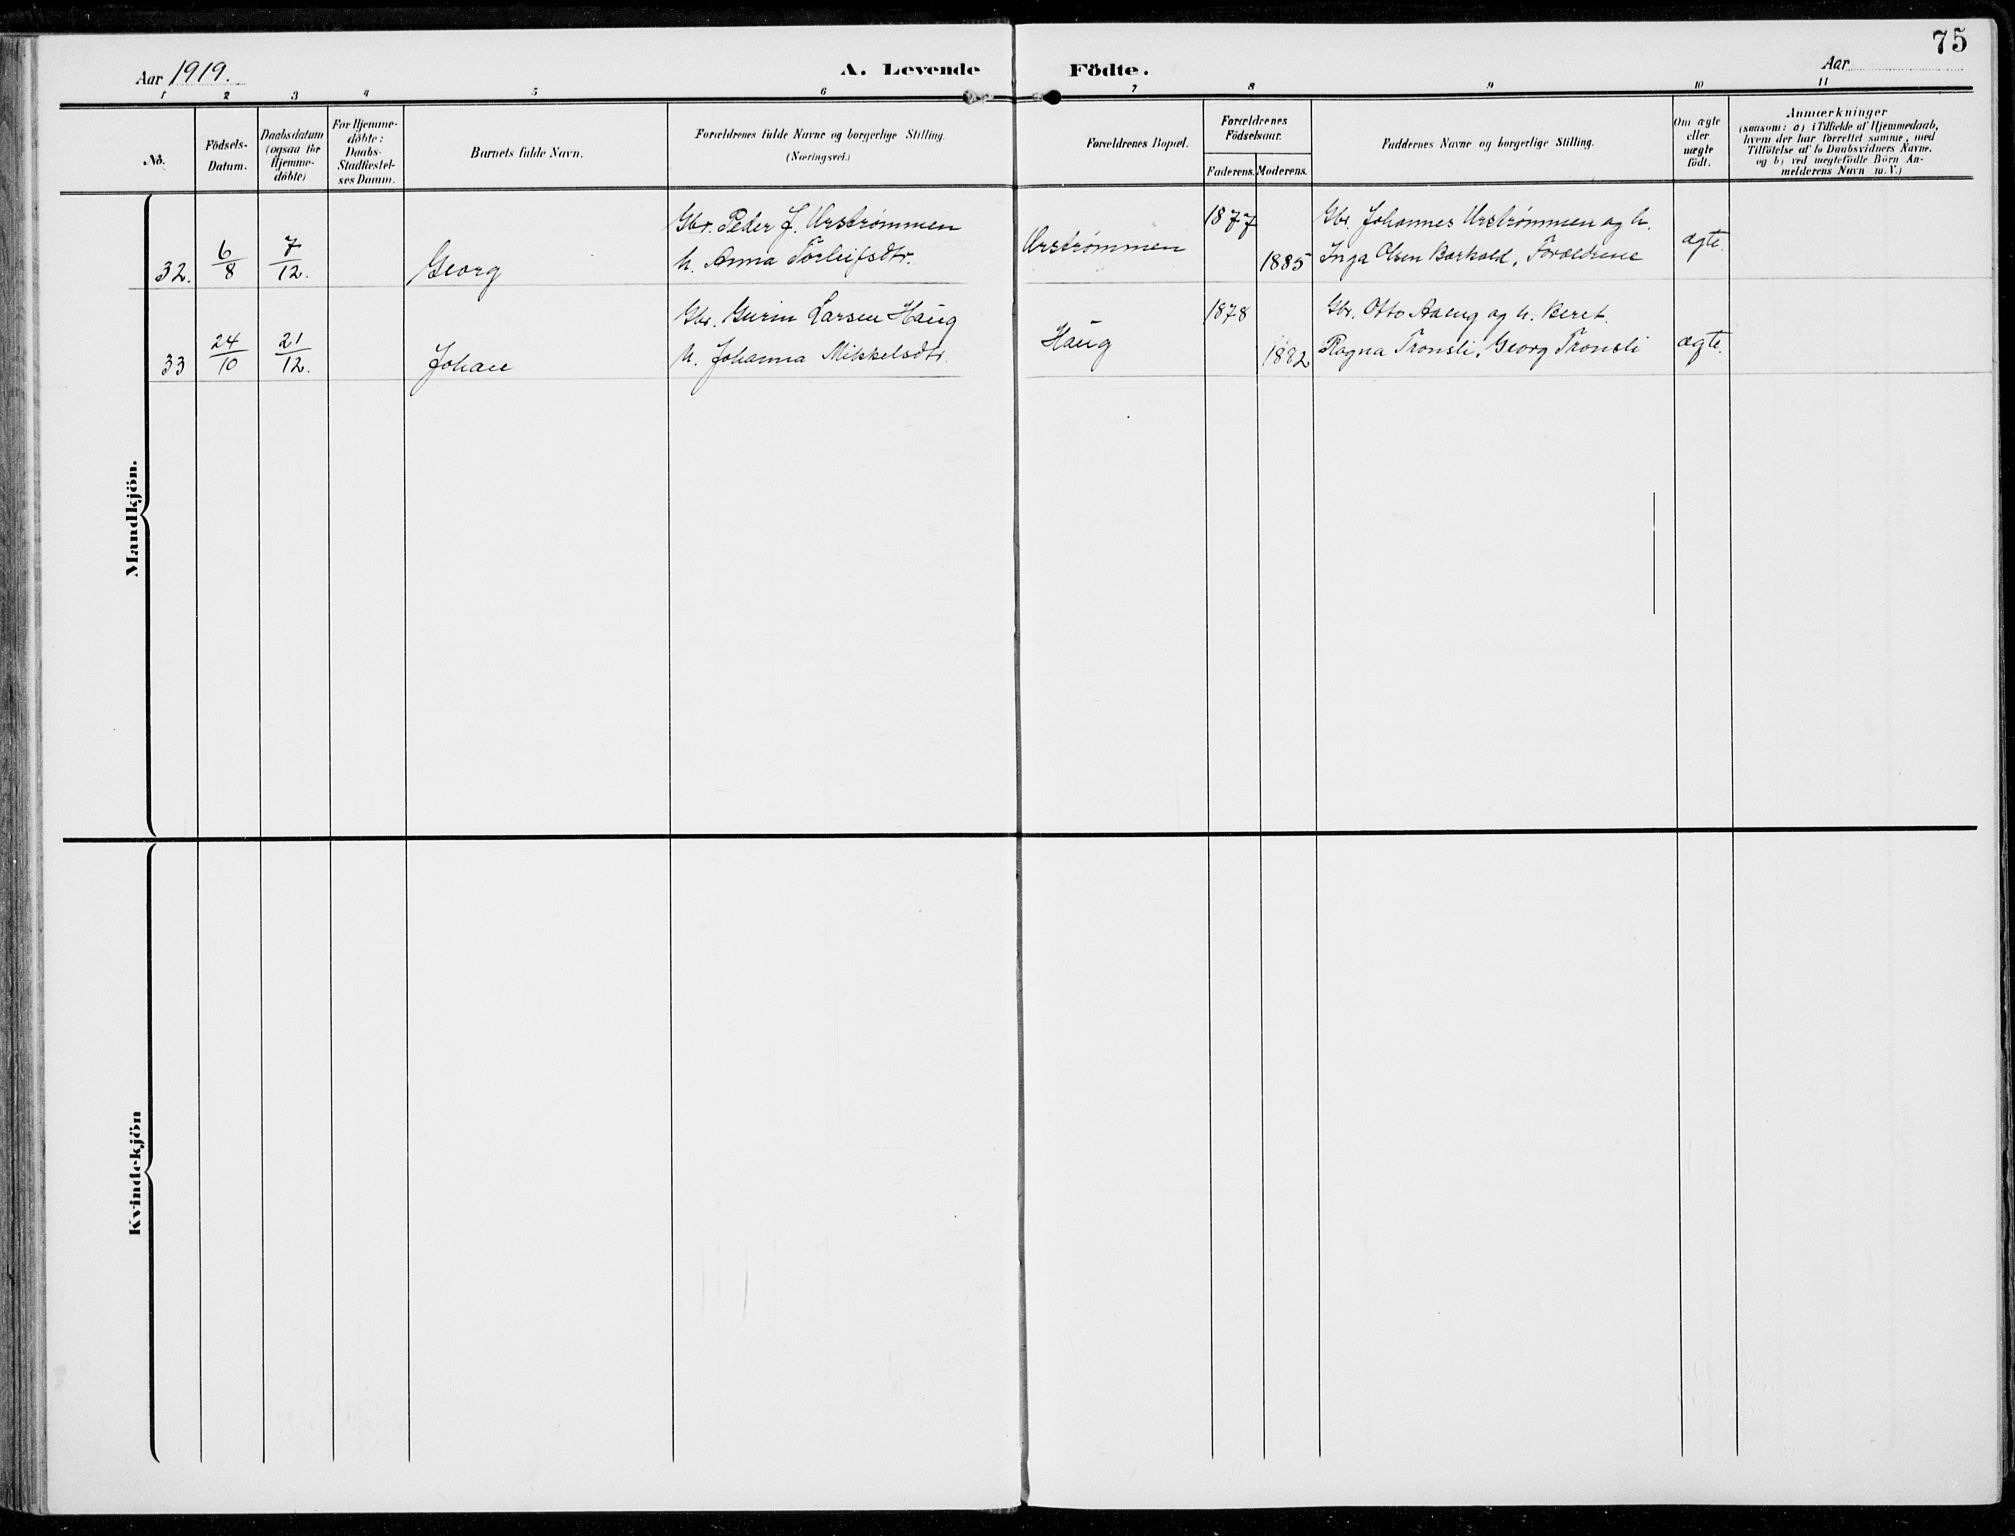 75
Aar 1919.
A. Levende Födte.
Aar
1 2 3 4 5 6 7 8 9 10 11
No.
Födsels-
Datum.
Daabsdatum
(ogsaa for
Hjemme-
döbte)
For Hjemme-
döbte:
Daabs-
Stadfæstel-
ses Datum.
Barnets fulde Navn.
Forældrenes fulde Navne og borgerlige Stilling.
(Næringsvei.)
Forældrenes Bopæl.
Forældrenes
Födselsaar.
Faderens. Moderens.
Faddernes Navne og borgerlige Stilling.
Om ægte
eller
uægte
födt.
Anmærkninger
(saasom: a) i Tilfælde af Hjemmedaab,
hvem der har forrettet samme, med
Tilföielse af to Daabsvidners Navne.
og b) ved uægtefödte Börn An-
melderens Navn m.V.)
Mandkjön.
32. 6/8 7/12. Georg
Gbr. Peder J. Urströmmen
h. Anna Torleifsdtr.
Urströmmen
1877
1885
Gbr. Johannes Urströmmen og h.
Inga Olsen Barkald, Forældrene
ægte.
33 24/10 21/12. Johan
Gbr. Gurin Larsen Haug
h. Johanna Mikkelsdtr.
Haug
1878
1882
Gbr. Otto Aaeng og h. Beret.
Ragna Tronsli, Georg Tronsli
ægte.
Kvindekjön